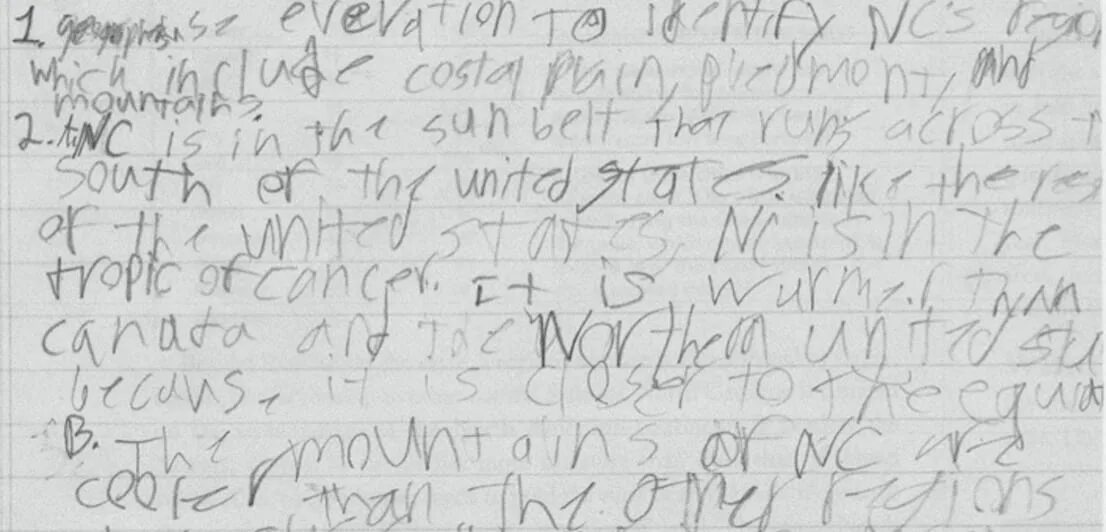 1. use elevation to identify NC's regio
which include costal plain, pliedmont, and
mountains.
2. NC is in the sun belt that runs across t
South of the united states. like the res
of the united states, NC is in the
tropic of cancer. It is wurmer than
canada and the Northern united sta
because it is closer to the equat
B. The mountains of NC are
cooler than the other regions